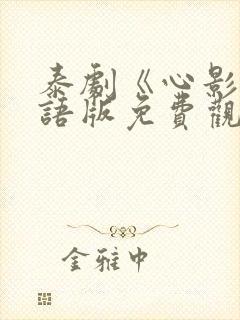 泰劇《心影
語版免費觀
金雅中